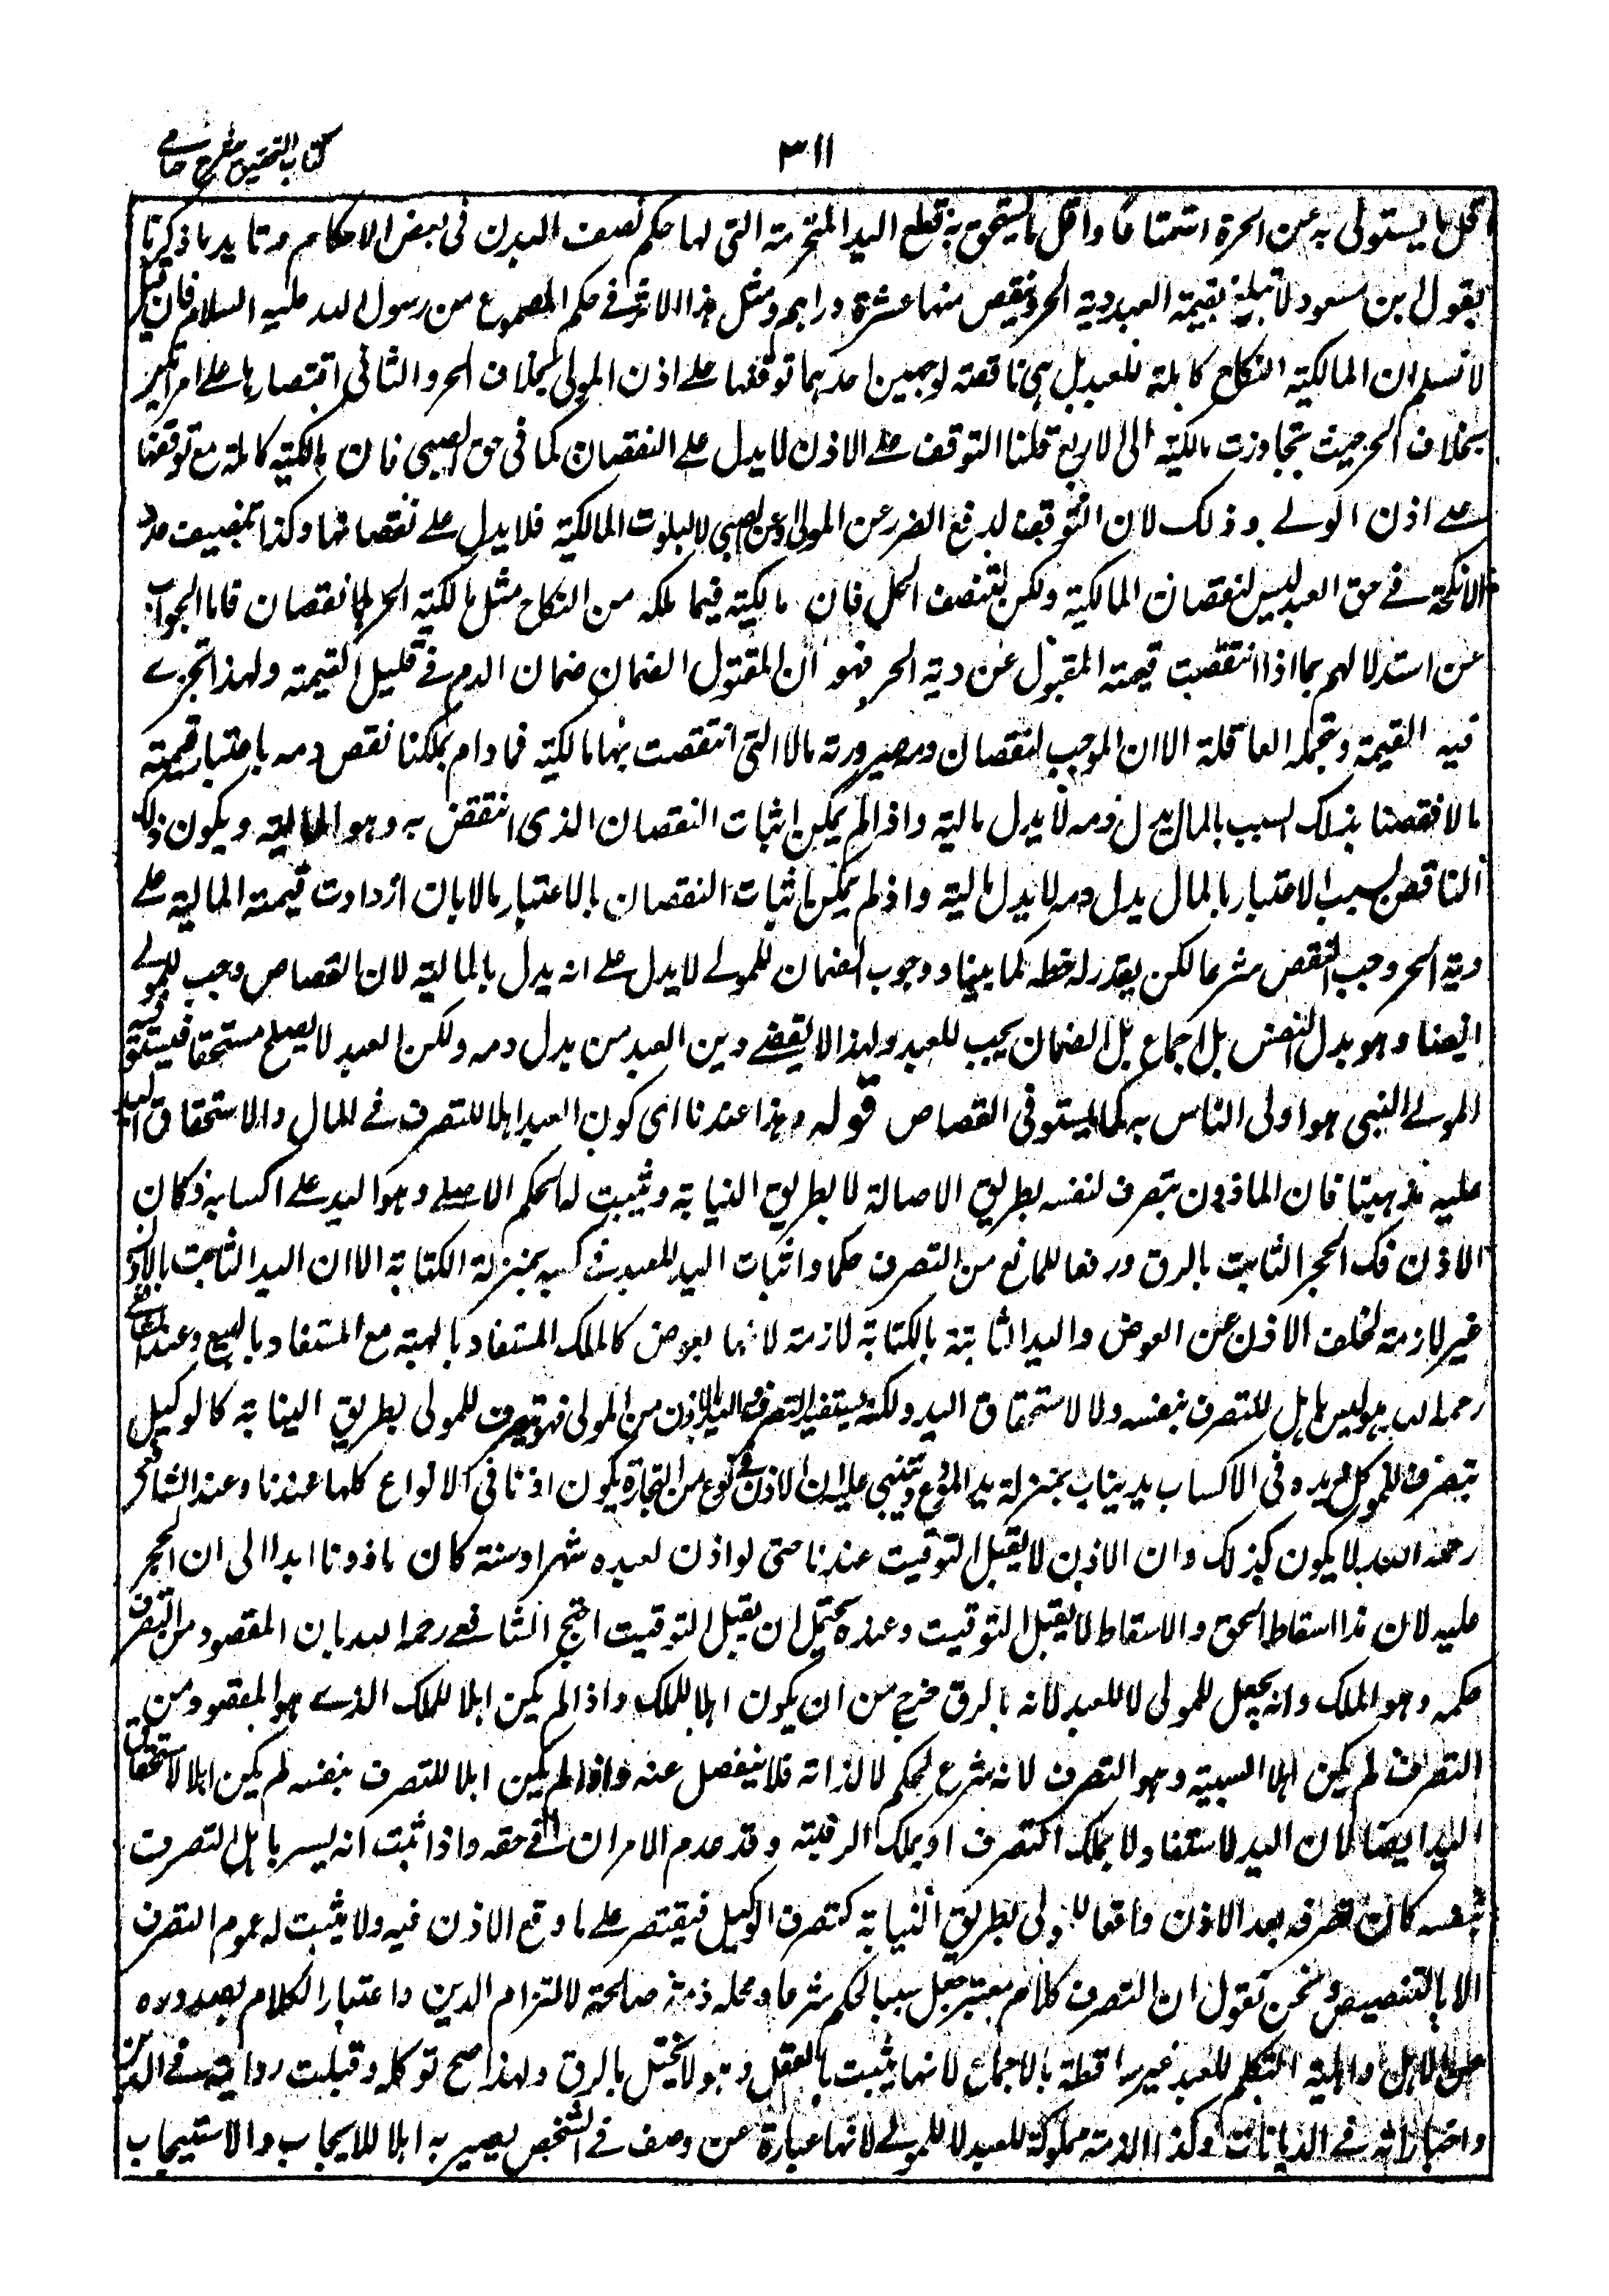 كتاب التحقيق شرح حسامي
٣١١
اقل ما يستولى به عن الحرة استمتاعا واقل ما يستحق به قطع اليد المحترمة التى لها حكم نصف البدن فى بعض الاحكام وتايد ما ذكرنا
بقول ابن مسعود لا تبلغ بقيمة العبد دية الحر وينقص منها عشرة دراهم ومثل هذا الاثر فے حكم المسموع من رسول الله عليه السلام فان قيل
لا نسلم ان المالكية النكاح كاملة للعبد بل هى ناقصة لوجهين احدهما توقفها علے اذن المولى بخلاف الحر والثانى اقتصارها علے امراتين
بخلاف الحر حيث يتجاوزت مالكيته الى الاربع قلنا التوقف علے الاذن لا يدل علے النقصان كما فى حق الصبى فان مالكيته كاملة مع توقفها
علے اذن الولے وذلك لان التوقف لدفع الضرر عن المولى وعن الصبى لا لثبوت المالكية فلا يدل علے نقصانها وكذا تنصيف عدد
الانكحة فے حق العبد ليس لنقصان المالكية ولكن لتنصف الحل فان مالكيته فيما ملكه من النكاح مثل مالكية الحر بلا نقصان فاما الجواب
عن استدلالهم بما اذا انتقصت قيمة المقتول عن دية الحر فهو ان المقتول الضمان ضمان الدم فے قليل القيمة ولهذا تجزے
فيه القيمة وتحمله العاقلة الا ان الموجب لنقصان ومصيرورته مالا التى انتقصت بها مالكية فما دام يمكننا نقص دمه باعتبار قيمته
مالا نقصنا بذلك السبب بالمال بدل دمه لا بدل ماليته واذا لم يمكن اثبات النقصان الذى انتقض به وهو المالية ويكون ذلك
الناقص لسبب الاعتبار بالمال بدل دمه لا بدل ماليته واذ لم يمكن اثبات النقصان بالاعتبار مالا بان ازدادت قيمة المالية علے
دية الحر وجب النقص شرعا لكن بقدر له خطر كما بينا ووجوب الضمان للمولے لا يدل علے انه بدل بالمالية لان القصاص وجب للمولے
ايضا وهو بدل النفس بل اجماع بل الضمان يجب للعبد ولهذا لا يقضے دين العبد من بدل دمه ولكن العبد لا يصلح مستحقا فيستوفيه
المولے الذى هو اولى الناس به كما يستوفى القصاص قوله وهذا عندنا اى كون العبد اهلا للتصرف فے المال والاستحقاق اليد
عليه مذهبنا فان الماذون يتصرف لنفسه بطريق الاصالة لا بطريق النيابة ويثبت له الحكم الاصلے وهو اليد علے اكسابه فكان
الاذن فك الحجر الثابت بالرق ورفعا للمانع من التصرف حكما واثبات اليد للعبد فے كسبه بمنزلة الكتابة الا ان اليد الثابت بالاذن
غير لازمة لخلف الاذن عن العوض واليد الثابتة بالكتابة لازمة لانها بعوض كالملك المستفاد بالهبة مع المستفاد بالبيع وعند الشافعے
رحمه الله هو ليس باهل للتصرف بنفسه ولا لاستحقاق اليد ولكنه يستفيد التصرف واليد بالاذن من المولى فهو يتصرف للمولى بطريق النيابة كالوكيل
يتصرف للموكل ويده فى الاكساب يد نيابة بمنزلة يد المودع ويبتنى عليه ان الاذن فے نوع من التجارة يكون اذنا فى الانواع كلها عندنا وعند الشافعى
رحمه الله لا يكون كذلك وان الاذن لا يقبل التوقيت عندنا حتى لو اذن لعبده شهرا وسنة كان ماذونا ابدا الى ان الحجر
عليه لان هذا اسقاط الحق والاسقاط لا يقبل التوقيت وعنده يحتمل ان يقبل التوقيت احتج الشافعے رحمه الله بان المقصود من التصرف
حكمه وهو الملك وانه يجعل للمولى لا للعبد لانه بالرق خرج من ان يكون اهلا للملك واذا لم يكن اهلا للملك الذے هو المقصود من
التصرف لم يكن اهلا لسببه وهو التصرف لانه شرع لحكمه لا لذاته فلا ينفصل عنه واذا لم يكن اهلا للتصرف بنفسه لم يكن اهلا لاستحقاق
اليد ايضا لان اليد لا تستفاد لا بملك التصرف او بملك الرقبة وقد عدم الامران فے حقه واذا ثبت انه ليس باهل التصرف
بنفسه كان تصرفه بعد الاذن واقعا للمولى بطريق النيابة كتصرف الوكيل فيقتصر علے ما وقع الاذن فيه ولا يثبت له عموم التصرف
الا بالتنصيص ونحن نقول ان التصرف كلام معتبر جعل سببا لحكم شرعا ومحله ذمة صالحة لالتزام الدين واعتبار الكلام بصدوره
عن الاهل واهلية التكلم للعبد غير ساقطة بالاجماع لانها يثبت بالعقل وهو لا يختل بالرق ولهذا صح توكله وقبلت روايته فے الدين
واخباراته فے الديانات وكذا الذمة مملوكة للعبد لا للمولے لانها عبارة عن وصف فے الشخص يصير به اهلا للايجاب والاستيجاب